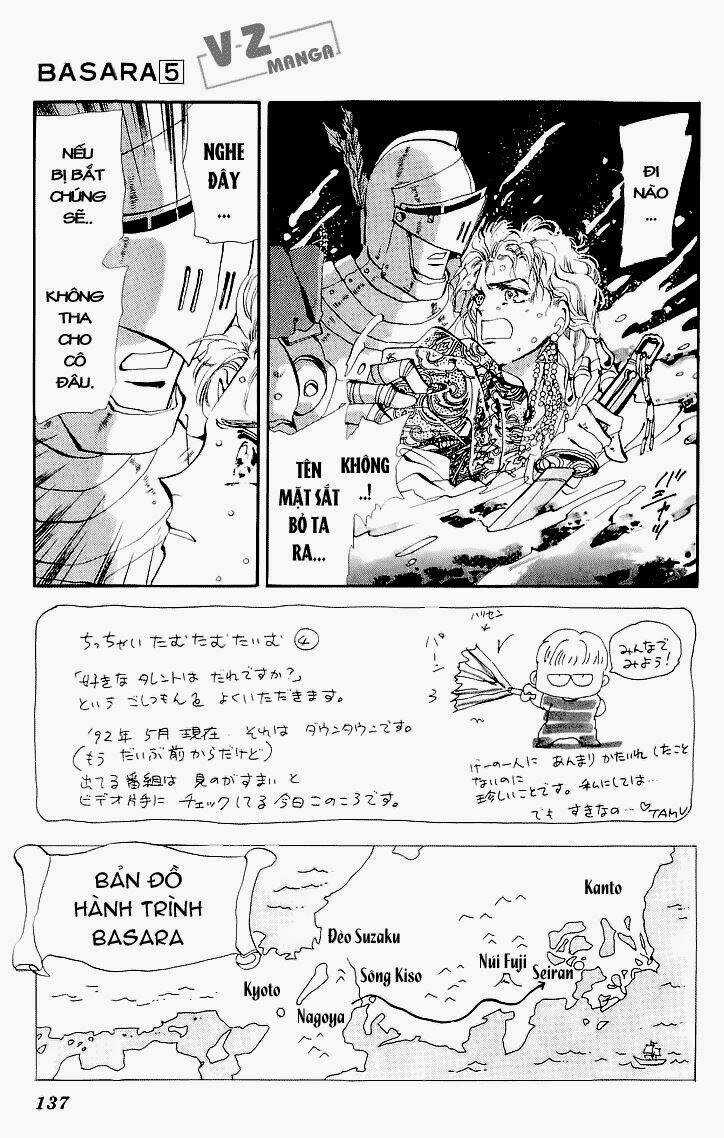 BASARA 5
V-Z
MANGA
ĐI
NÀO
...
KHÔNG
..!
TÊN
MẶT SẮT
BỎ TA
RA...
バシャッ
NGHE
ĐÂY
...
NẾU
BỊ BẮT
CHÚNG
SẼ..
KHÔNG
THA
CHO
CÔ
ĐÂU.
ちっちゃい たむたむたいむ ④
「好きな タレントは だれですか?」
という ごしつもんを よくいただきます。
'92年 5月 現在 それは ダウンタウンです。
(もう だいぶ前からだけど)
出てる番組は 見のがすまい と
ビデオ片手に チェックしてる今日このころです。
ハリセン
パーン
みんなで
みよう!
げーの一人に あんまり かたいれ したこと
ないのに
珍しいことです。私にしては…
でも すきなの…♡TAMU
BẢN ĐỒ
HÀNH TRÌNH
BASARA
Kanto
Đèo Suzaku
Sông Kiso
Núi Fuji
Seiran
Kyoto
Nagoya
137